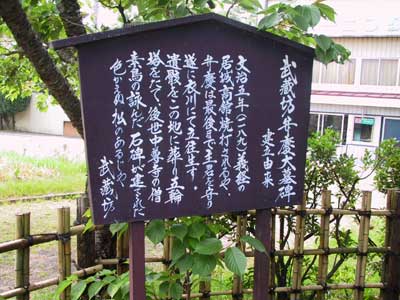 武蔵坊弁慶大墓碑
建立由来
文治五年(一一八九)義経の
居城高館焼打されるや
弁慶は最後まで主君を守り
遂に衣川にて立往生す、
遺骸をこの地に葬り五輪
塔をたて後世中尊寺の僧
素鳥の詠んだ石碑が建てられた
色かえぬ松のあるじや
武蔵坊